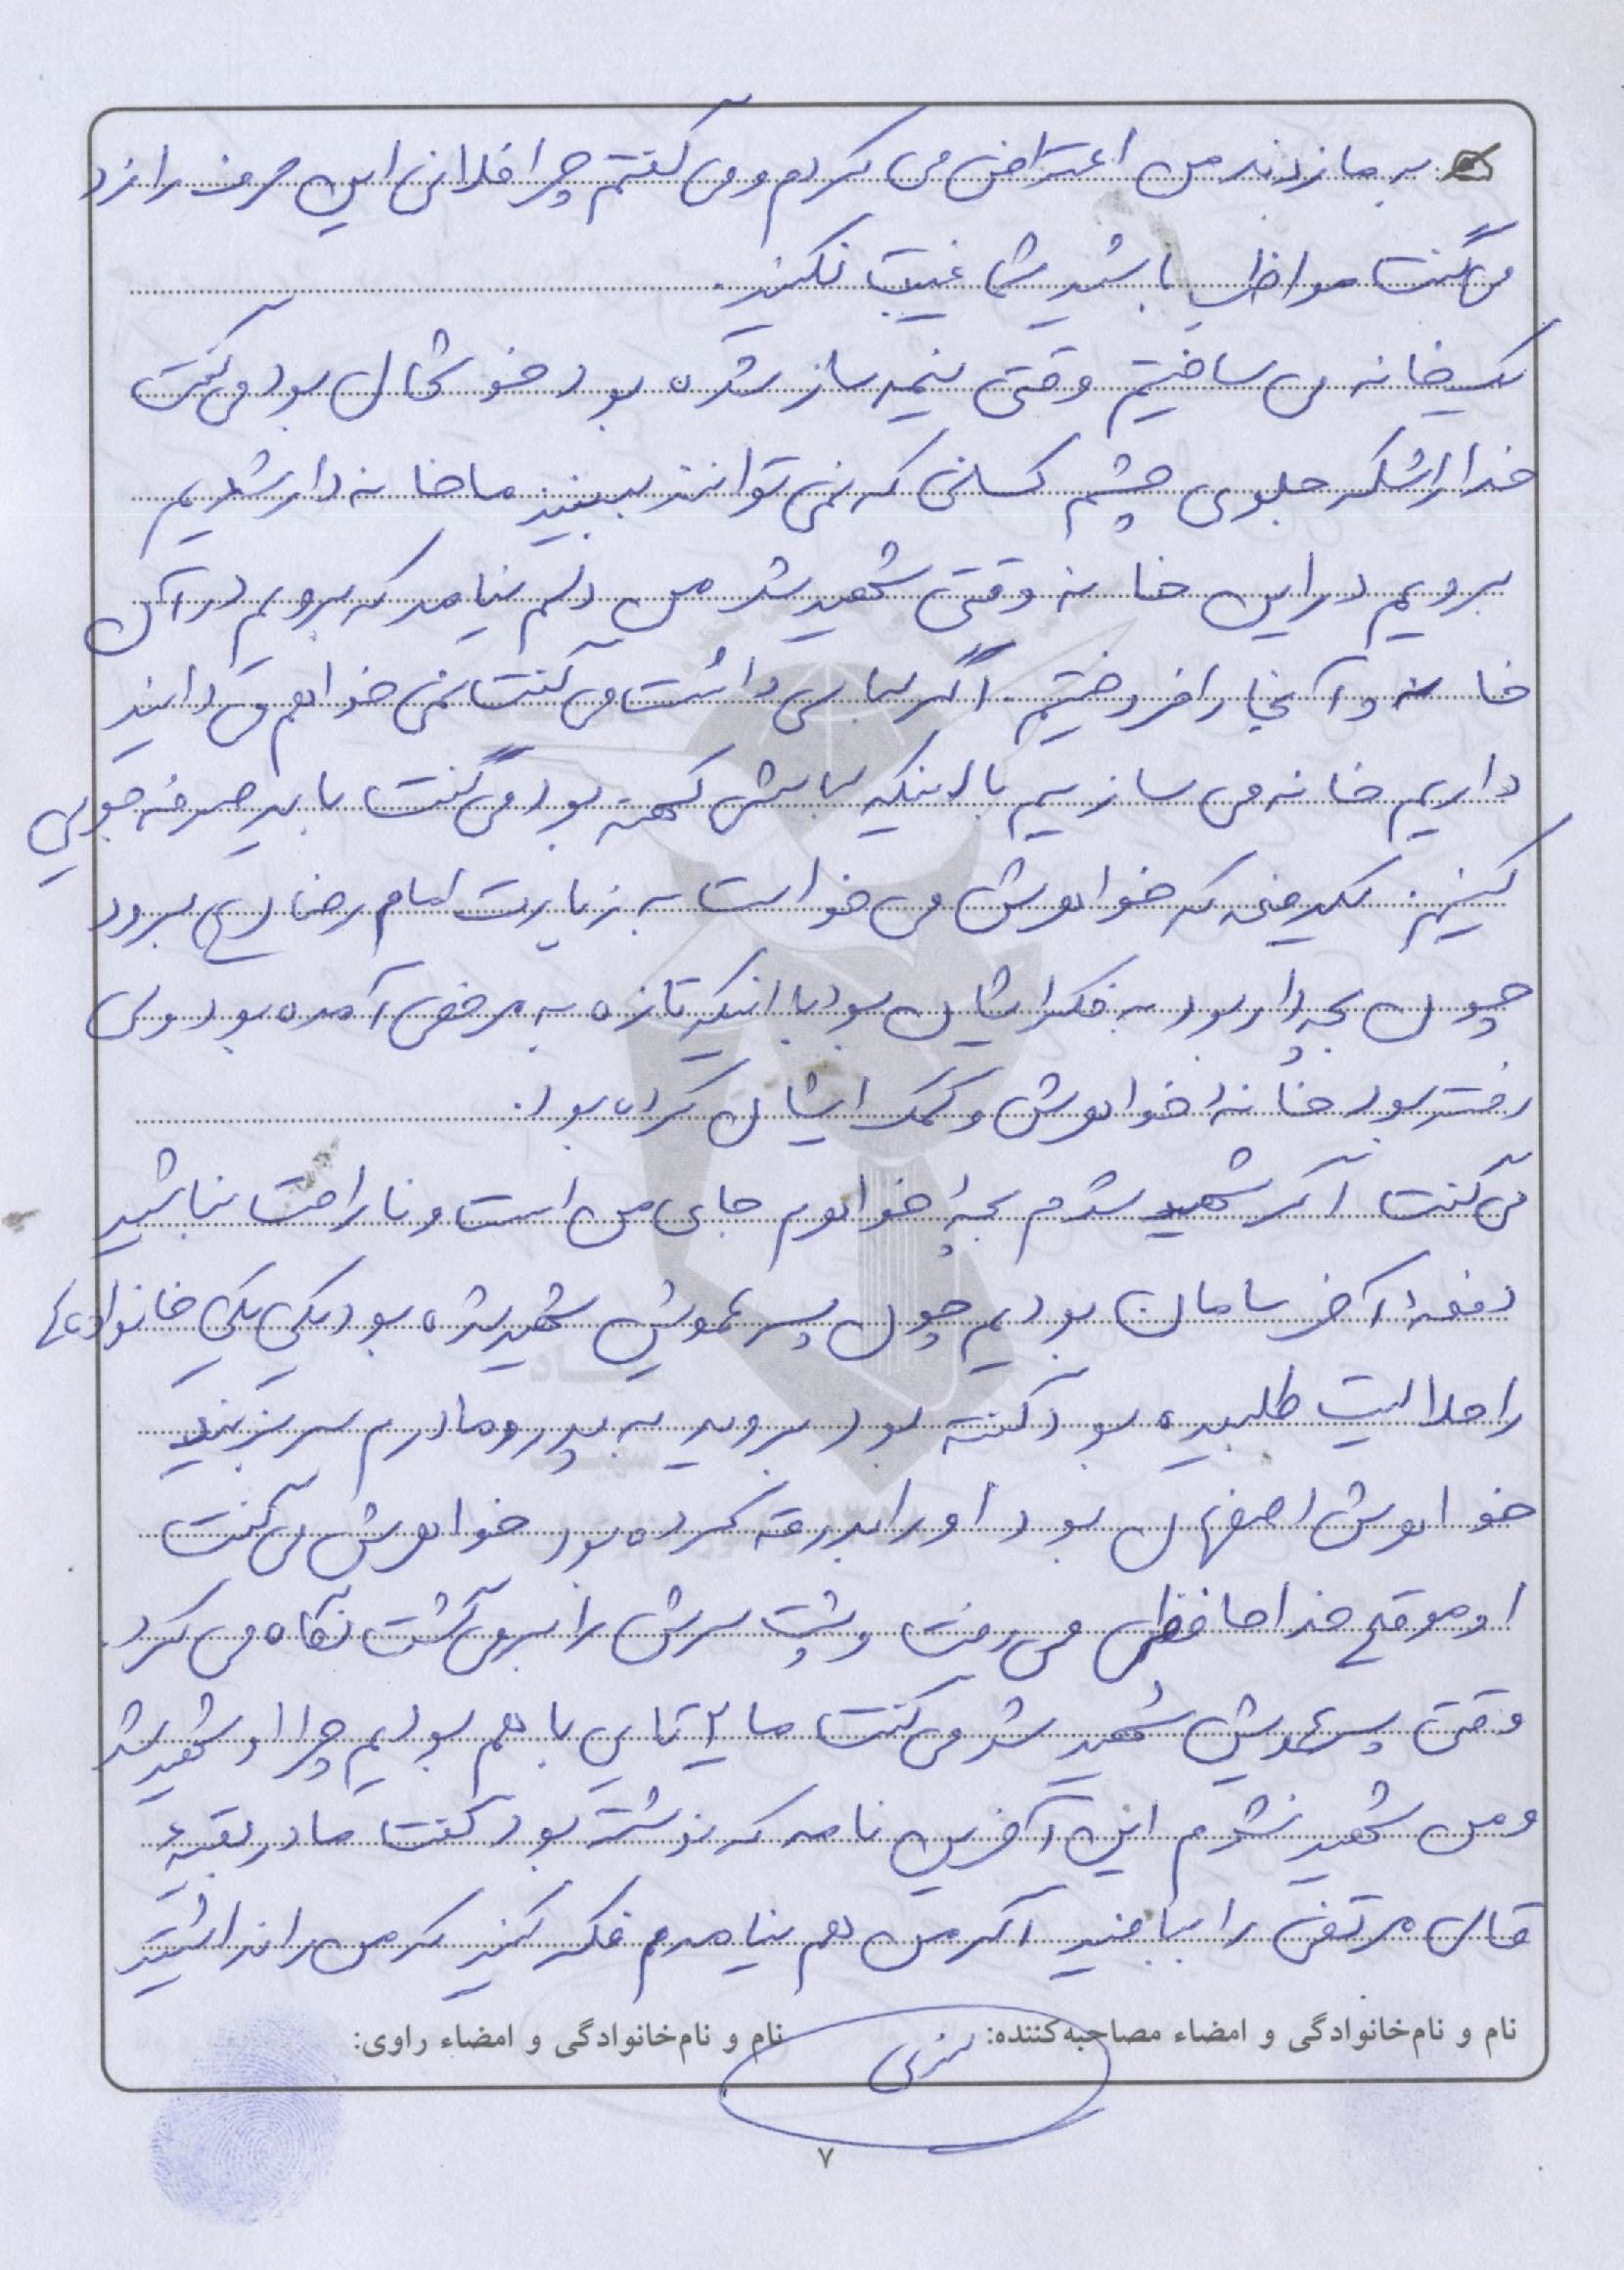 به ما زدند من اعتراض می کردم و می گفتم چرا فلانی این حرف را زد
می گفت مواظب باشید شما غیبت نکنید.
یک خانه می ساختیم وقتی نیمه ساز شده بود خوشحال بود می گفت
خدا را شکر جلوی چشم کسانی که نمی توانند ببینند ما خانه دار شدیم
برویم در این خانه وقتی شهید شد من دلم نیامد که برویم در آن
خانه و آنجا را فروختیم. اگر لباسی داشت می گفت نمی خواهم می دانید
داریم خانه می سازیم با اینکه لباسش کهنه بود می گفت باید صرفه جویی
کنیم. یکدفعه که خواهرش می خواست به زیارت امام رضا (ع) برود
چون بچه دار بود به فکر ایشان بود با اینکه تازه به مرخصی آمده بود ولی
رفته بود خانهٔ خواهرش و کمک ایشان کرده بود.
می گفت اگر شهید شدم بچهٔ خواهرم جای من است و ناراحت نباشید
دفعهٔ آخر سامان بودیم چون پسر عمویش شهید شده بود یکی یکی خانواده ها
را حلالیت طلبیده بود گفته بود بروید به پدر و مادرم سر بزنید
خواهرش اصفهان بود او را بدرقه کرده بود خواهرش می گفت
او موقع خداحافظی می رفت و پشت سرش را برمی گشت نگاه می کرد.
وقتی پسرعمویش شهید شد می گفت ما ۲ تایی با هم بودیم چرا او شهید شد
و من شهید نشدم این آخرین نامه که نوشته بود گفت مادر بقیهٔ
قالی مرتضی را ببافید اگر من هم نیامدم فکر کنید که من را نداشتید
نام و نام‌خانوادگی و امضاء مصاحبه‌کننده:
نام و نام‌خانوادگی و امضاء راوی:
۷